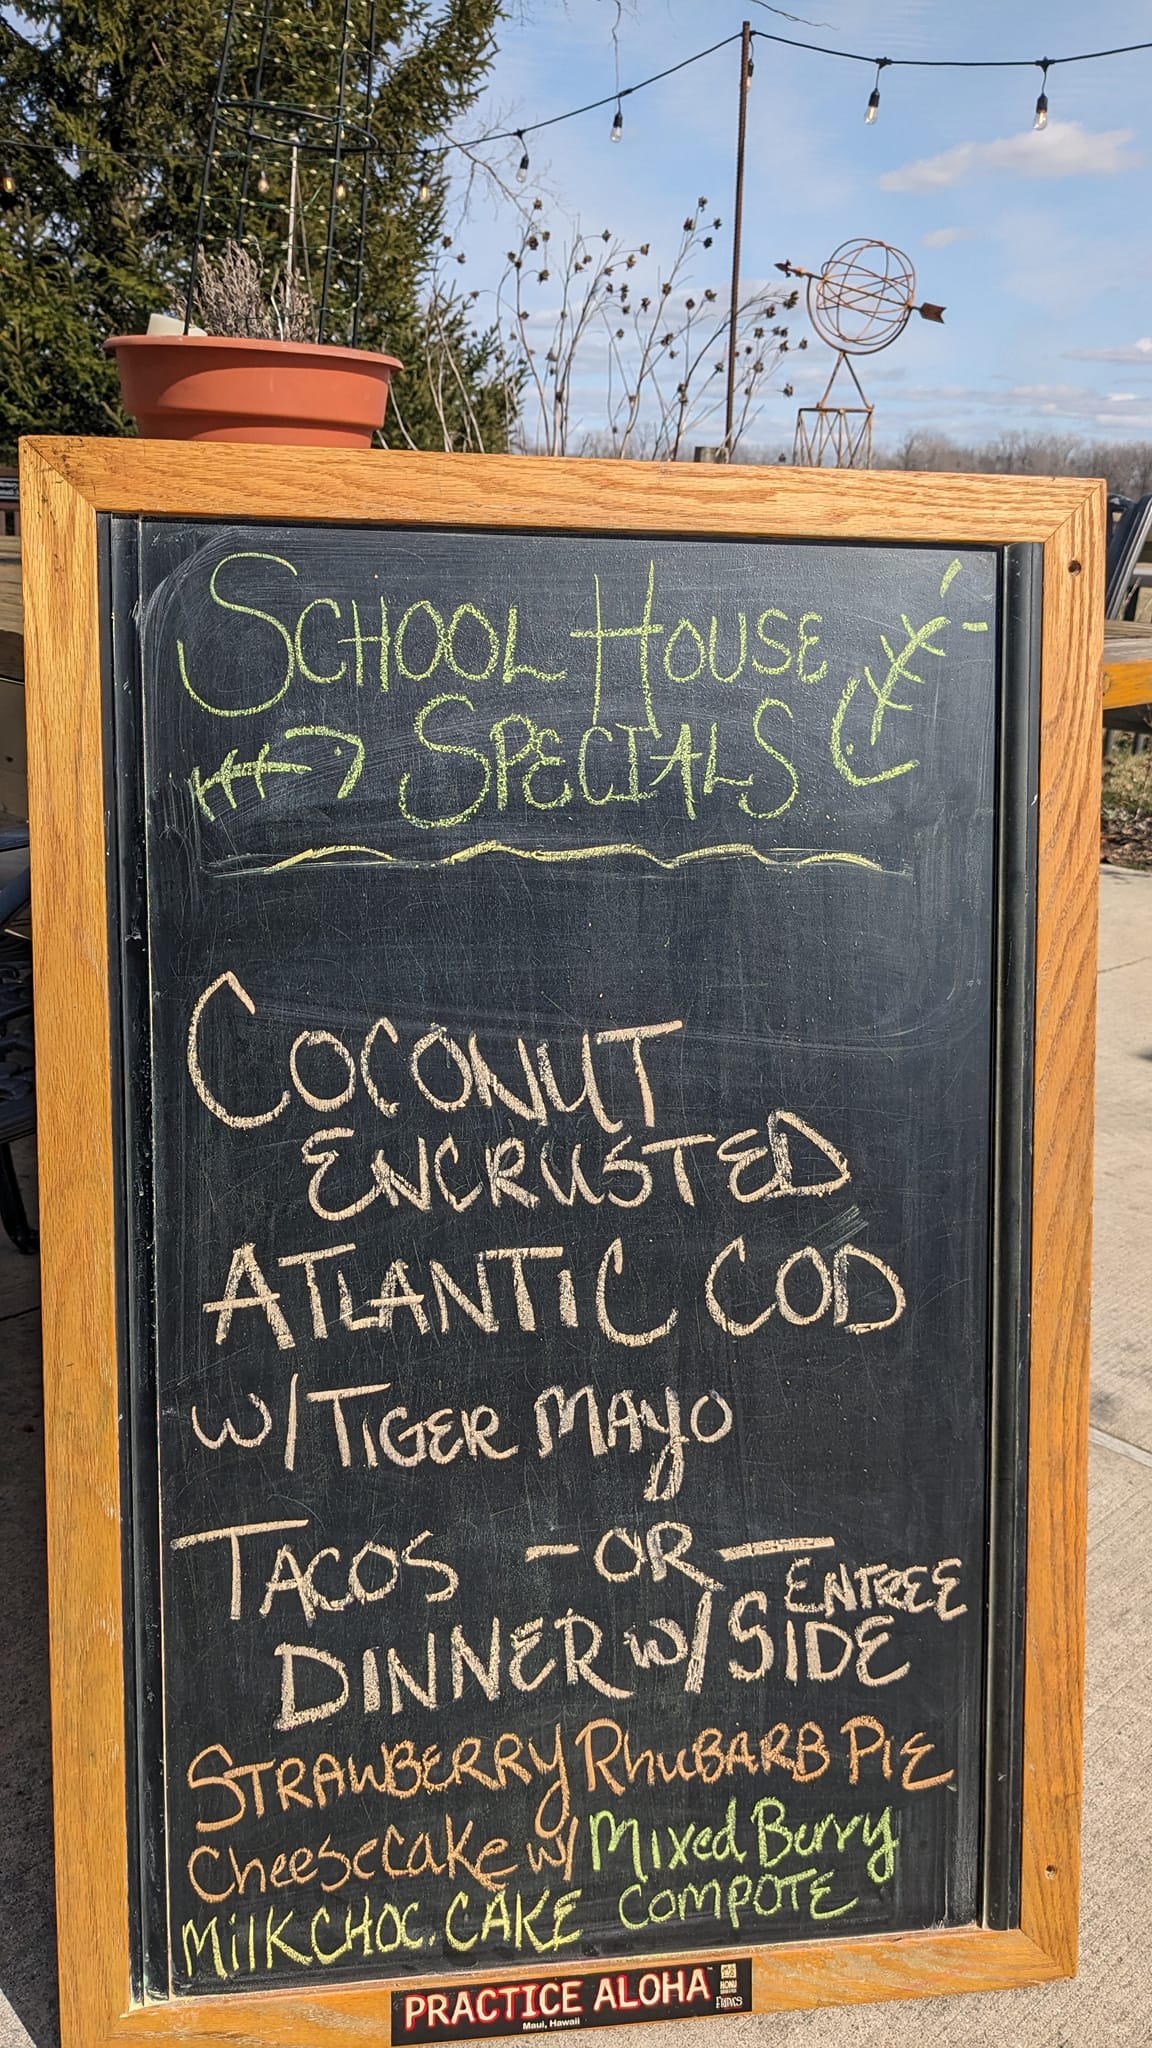 SCHOOL HOUSE
SPECIALS
COCONUT
ENCRUSTED
ATLANTIC COD
W/TIGER MAYO
TACOS -OR- ENTREE
DINNER W/ SIDE
STRAWBERRY RhuBARB PIE
CheeseCaKe w/ Mixed Berry
MilK CHOC. CAKE COMPOTE
PRACTICE ALOHA™
Maui, Hawaii
HONU